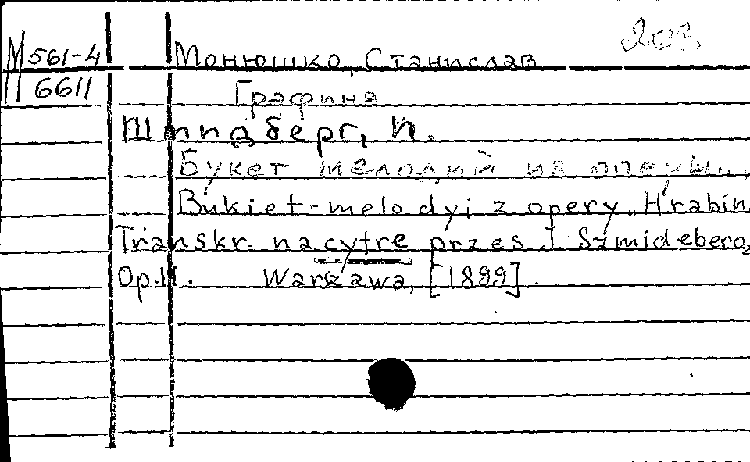 203.
М 561-4 Монюшко, Станислав
6611 Графиня
Шмидеберг, И.
Букет мелодий из оперы...
Bukiet-melodyi z opery „Hrabin
Transkr. na cytrę przes J. Szmideberg,
Op. 11. Warszawa, [1899].